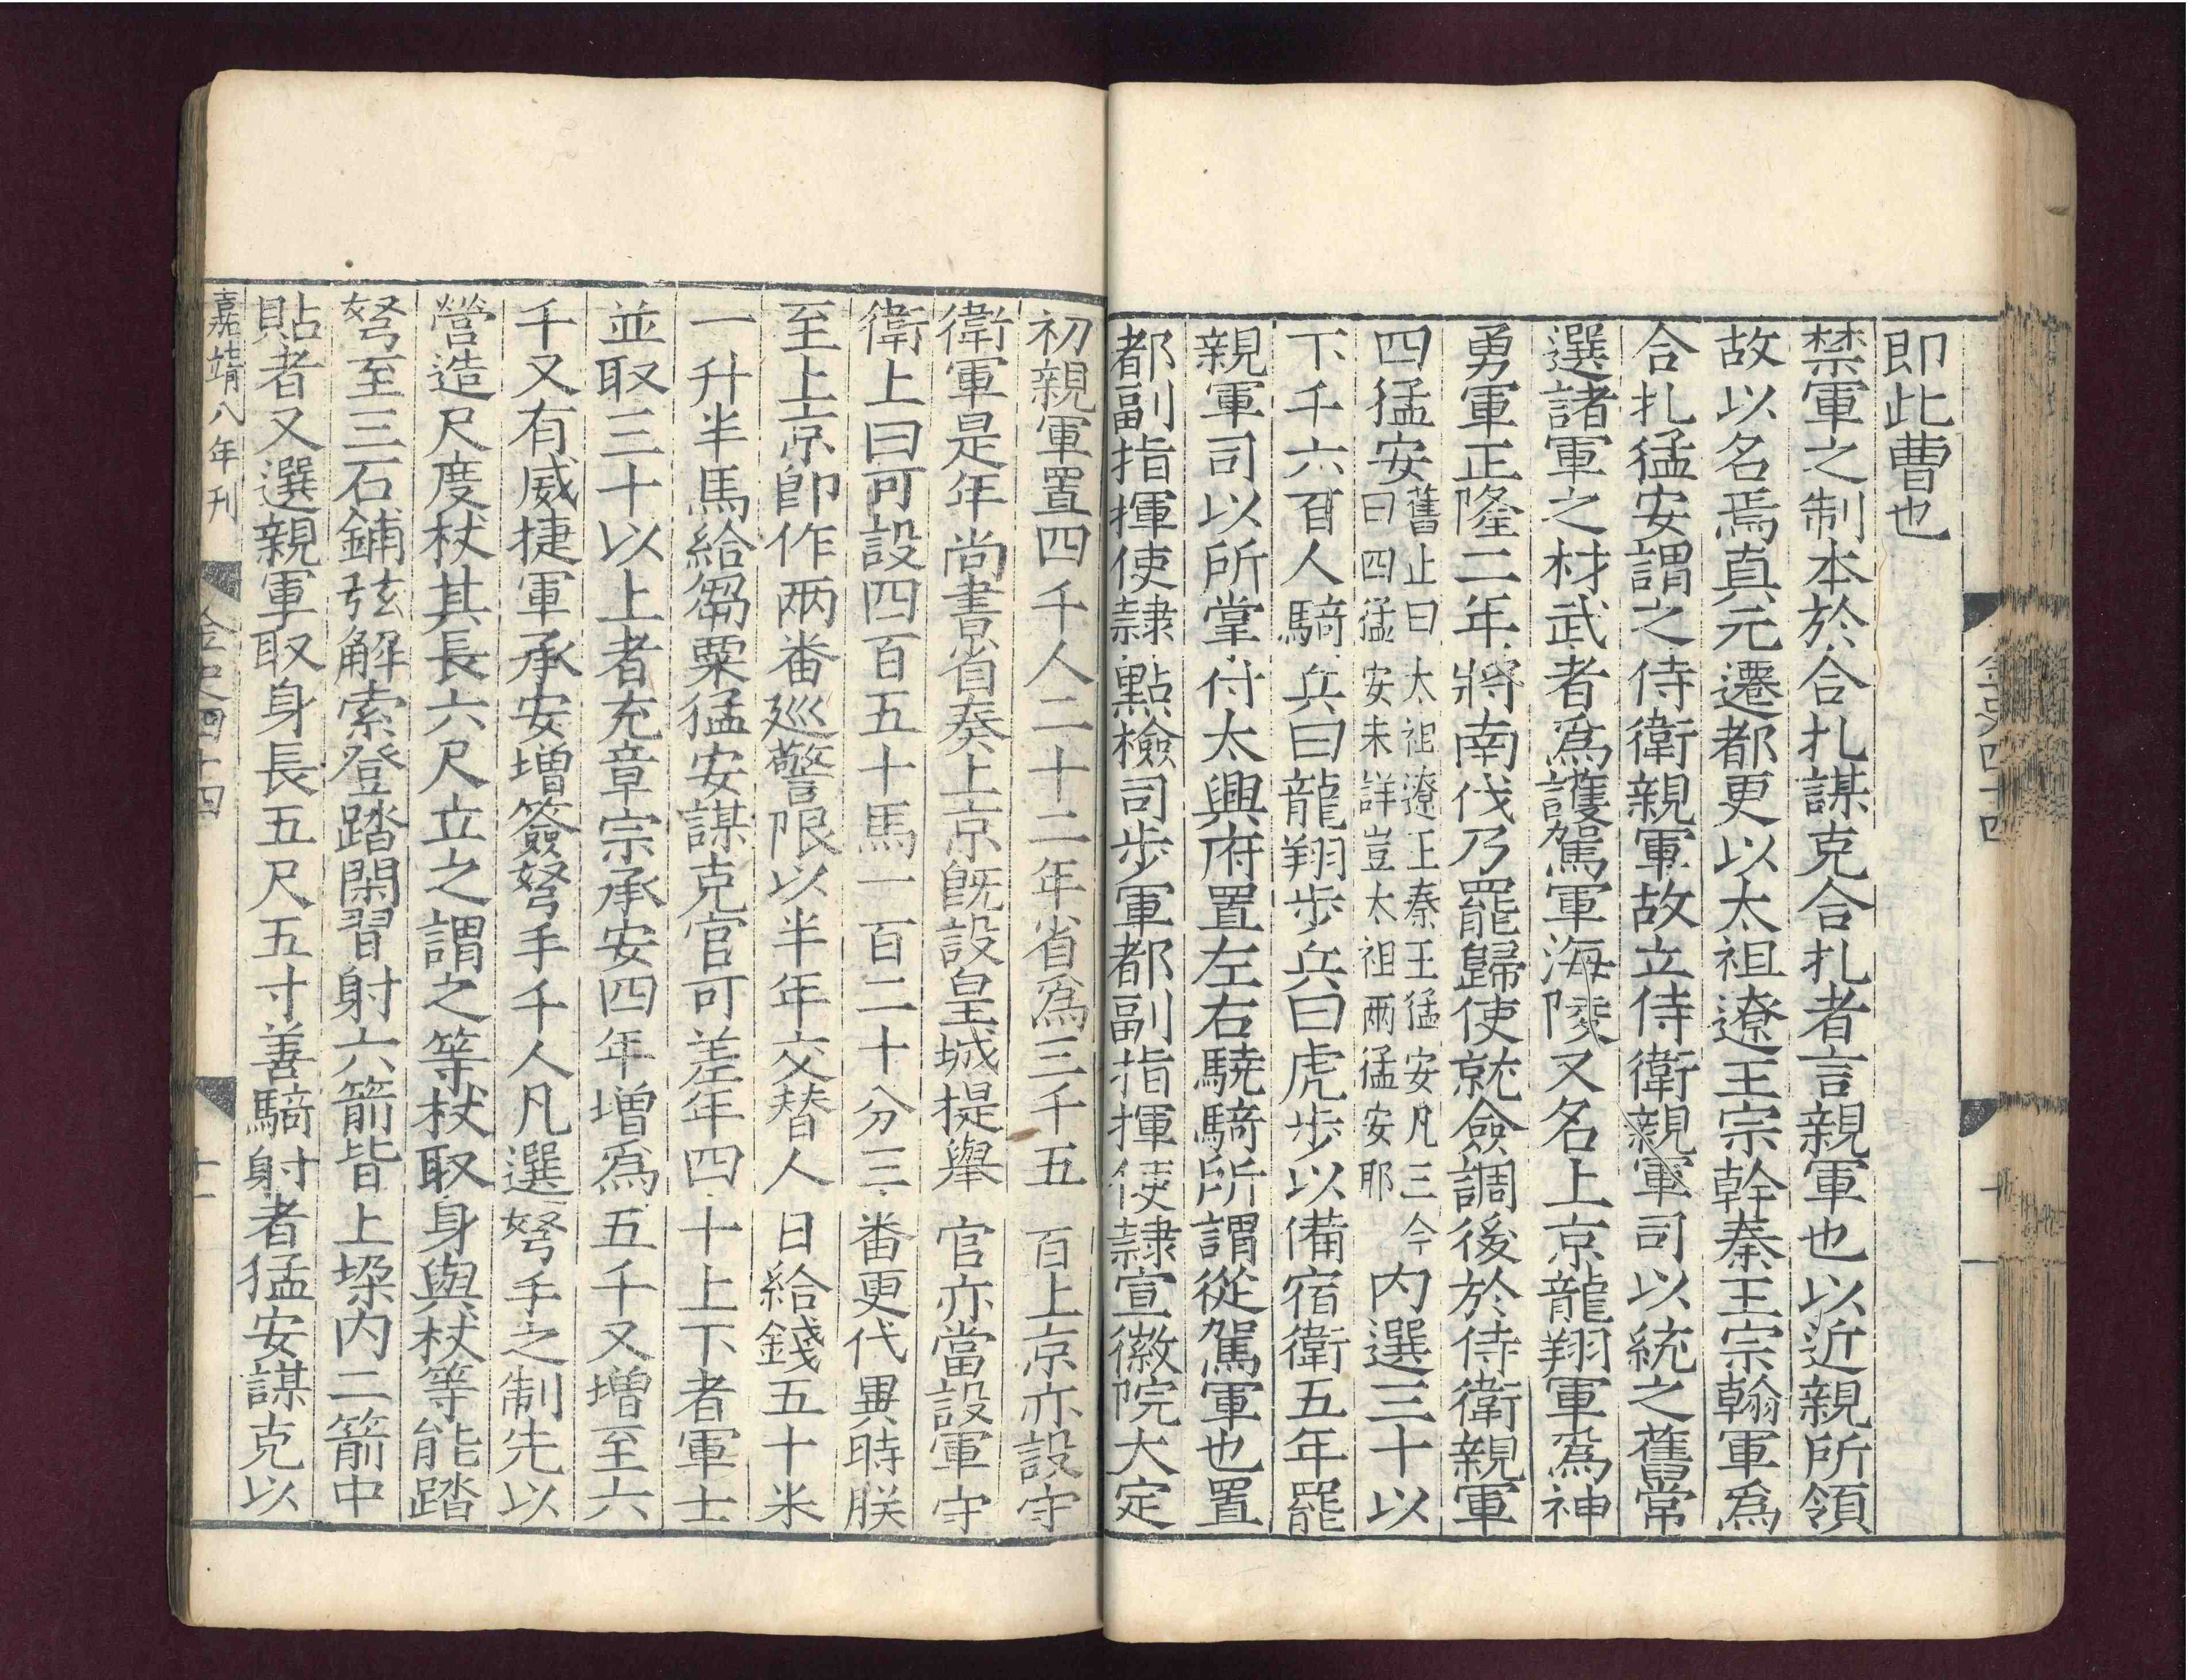 即此曹也
禁軍之制本於合扎謀克合扎者言親軍也以近親所領
故以名焉真元遷都更以太祖遼王宗幹秦王宗翰軍爲
合扎猛安謂之侍衛親軍故立侍衛親軍司以統之舊常
選諸軍之材武者爲護駕軍海陵又名上京龍翔軍爲神
勇軍正隆二年將南伐乃罷歸使就僉調後於侍衛親軍
四猛安舊止曰太祖遼王秦王猛安凡三今曰四猛安未詳豈太祖兩猛安耶内選三十以
下千六百人騎兵曰龍翔步兵曰虎步以備宿衛五年罷
親軍司以所掌付太興府置左右驍騎所謂從駕軍也置
都副指揮使隷點檢司步軍都副指揮使隷宣徽院大定
金史四十四
初親軍置四千人二十二年省爲三千五百上京亦設守
衛軍是年尚書省奏上京旣設皇城提舉官亦當設軍守
衛上曰可設四百五十馬一百二十分三番更代異時朕
至上京即作兩番巡警限以半年交替人日給錢五十米
一升半馬給芻粟猛安謀克官可差年四十上下者軍士
並取三十以上者充章宗承安四年增爲五千又增至六
千又有威捷軍承安增簽弩手千人凡選弩手之制先以
營造尺度杖其長六尺立之謂之等杖取身與杖等能踏
弩至三石鋪弦解索登踏閑習射六箭皆上垛内二箭中
貼者又選親軍取身長五尺五寸善騎射者猛安謀克以
嘉靖八年刊
金史四十四
十一